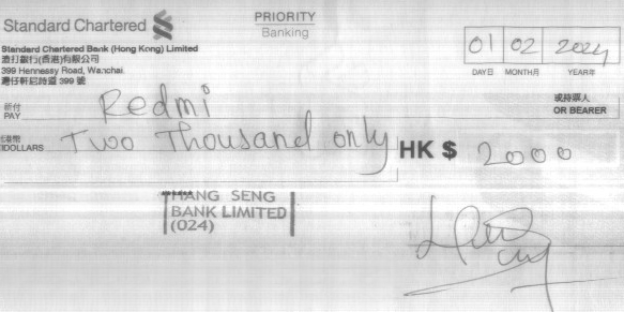 Standard Chartered
PRIORITY
Banking
Standard Chartered Bank (Hong Kong) Limited
渣打銀行(香港)有限公司
399 Hennessy Road, Wanchai
灣仔軒尼詩道 399 號
01 02 2024
DAY日 MONTH月 YEAR年
祈付
PAY
Redmi
或持票人
OR BEARER
港幣
DOLLARS
Two Thousand only
HK $ 2000
HANG SENG
BANK LIMITED
(024)